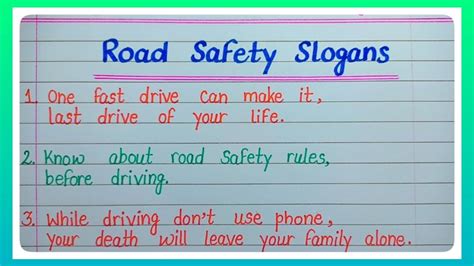 Road Safety Slogans
1. One fast drive can make it,
last drive of your life.
2. Know about road safety rules,
before driving.
3. While driving don't use phone,
your death will leave your family alone.